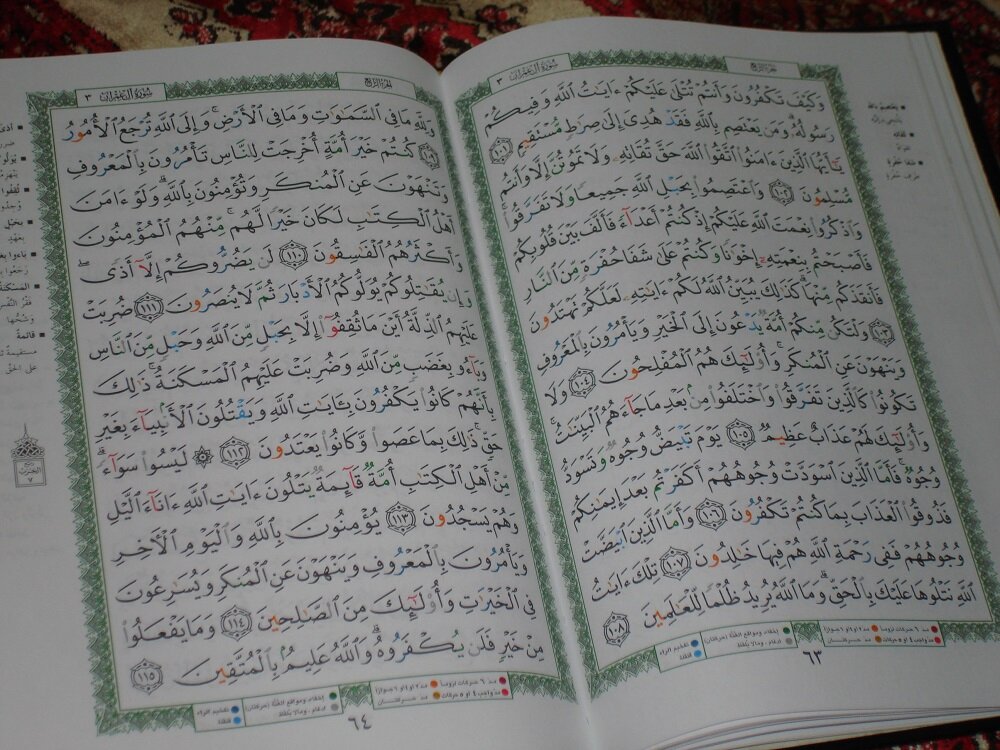 سورة آل عمران ٣
الجزء الرابع
وَكَيْفَ تَكْفُرُونَ وَأَنتُمْ تُتْلَىٰ عَلَيْكُمْ ءَايَٰتُ ٱللَّهِ وَفِيكُمْ
رَسُولُهُۥ ۗ وَمَن يَعْتَصِم بِٱللَّهِ فَقَدْ هُدِىَ إِلَىٰ صِرَٰطٍ مُّسْتَقِيمٍ ١٠١
يَٰٓأَيُّهَا ٱلَّذِينَ ءَامَنُوا۟ ٱتَّقُوا۟ ٱللَّهَ حَقَّ تُقَاتِهِۦ وَلَا تَمُوتُنَّ إِلَّا وَأَنتُم
مُّسْلِمُونَ ١٠٢ وَٱعْتَصِمُوا۟ بِحَبْلِ ٱللَّهِ جَمِيعًا وَلَا تَفَرَّقُوا۟ ۚ
وَٱذْكُرُوا۟ نِعْمَتَ ٱللَّهِ عَلَيْكُمْ إِذْ كُنتُمْ أَعْدَآءً فَأَلَّفَ بَيْنَ قُلُوبِكُمْ
فَأَصْبَحْتُم بِنِعْمَتِهِۦٓ إِخْوَٰنًا وَكُنتُمْ عَلَىٰ شَفَا حُفْرَةٍ مِّنَ ٱلنَّارِ
فَأَنقَذَكُم مِّنْهَا ۗ كَذَٰلِكَ يُبَيِّنُ ٱللَّهُ لَكُمْ ءَايَٰتِهِۦ لَعَلَّكُمْ تَهْتَدُونَ
١٠٣ وَلْتَكُن مِّنكُمْ أُمَّةٌ يَدْعُونَ إِلَى ٱلْخَيْرِ وَيَأْمُرُونَ بِٱلْمَعْرُوفِ
وَيَنْهَوْنَ عَنِ ٱلْمُنكَرِ ۚ وَأُو۟لَٰٓئِكَ هُمُ ٱلْمُفْلِحُونَ ١٠٤ وَلَا
تَكُونُوا۟ كَٱلَّذِينَ تَفَرَّقُوا۟ وَٱخْتَلَفُوا۟ مِنۢ بَعْدِ مَا جَآءَهُمُ ٱلْبَيِّنَٰتُ ۚ
وَأُو۟لَٰٓئِكَ لَهُمْ عَذَابٌ عَظِيمٌ ١٠٥ يَوْمَ تَبْيَضُّ وُجُوهٌ وَتَسْوَدُّ
وُجُوهٌ ۚ فَأَمَّا ٱلَّذِينَ ٱسْوَدَّتْ وُجُوهُهُمْ أَكَفَرْتُم بَعْدَ إِيمَٰنِكُمْ
فَذُوقُوا۟ ٱلْعَذَابَ بِمَا كُنتُمْ تَكْفُرُونَ ١٠٦ وَأَمَّا ٱلَّذِينَ ٱبْيَضَّتْ
وُجُوهُهُمْ فَفِى رَحْمَةِ ٱللَّهِ هُمْ فِيهَا خَٰلِدُونَ ١٠٧ تِلْكَ ءَايَٰتُ
ٱللَّهِ نَتْلُوهَا عَلَيْكَ بِٱلْحَقِّ ۗ وَمَا ٱللَّهُ يُرِيدُ ظُلْمًا لِّلْعَٰلَمِينَ
١٠٨
٦٣
سورة آل عمران ٣
الجزء الرابع
وَلِلَّهِ مَا فِى ٱلسَّمَٰوَٰتِ وَمَا فِى ٱلْأَرْضِ ۚ وَإِلَى ٱللَّهِ تُرْجَعُ ٱلْأُمُورُ
١٠٩ كُنتُمْ خَيْرَ أُمَّةٍ أُخْرِجَتْ لِلنَّاسِ تَأْمُرُونَ بِٱلْمَعْرُوفِ
وَتَنْهَوْنَ عَنِ ٱلْمُنكَرِ وَتُؤْمِنُونَ بِٱللَّهِ ۗ وَلَوْ ءَامَنَ
أَهْلُ ٱلْكِتَٰبِ لَكَانَ خَيْرًا لَّهُم ۚ مِّنْهُمُ ٱلْمُؤْمِنُونَ
وَأَكْثَرُهُمُ ٱلْفَٰسِقُونَ ١١٠ لَن يَضُرُّوكُمْ إِلَّآ أَذًى ۖ
وَإِن يُقَٰتِلُوكُمْ يُوَلُّوكُمُ ٱلْأَدْبَارَ ثُمَّ لَا يُنصَرُونَ ١١١ ضُرِبَتْ
عَلَيْهِمُ ٱلذِّلَّةُ أَيْنَ مَا ثُقِفُوٓا۟ إِلَّا بِحَبْلٍ مِّنَ ٱللَّهِ وَحَبْلٍ مِّنَ ٱلنَّاسِ
وَبَآءُو بِغَضَبٍ مِّنَ ٱللَّهِ وَضُرِبَتْ عَلَيْهِمُ ٱلْمَسْكَنَةُ ۚ ذَٰلِكَ
بِأَنَّهُمْ كَانُوا۟ يَكْفُرُونَ بِـَٔايَٰتِ ٱللَّهِ وَيَقْتُلُونَ ٱلْأَنۢبِيَآءَ بِغَيْرِ
حَقٍّ ۚ ذَٰلِكَ بِمَا عَصَوا۟ وَّكَانُوا۟ يَعْتَدُونَ ١١٢ ۞ لَيْسُوا۟ سَوَآءً ۗ
مِّنْ أَهْلِ ٱلْكِتَٰبِ أُمَّةٌ قَآئِمَةٌ يَتْلُونَ ءَايَٰتِ ٱللَّهِ ءَانَآءَ ٱلَّيْلِ
وَهُمْ يَسْجُدُونَ ١١٣ يُؤْمِنُونَ بِٱللَّهِ وَٱلْيَوْمِ ٱلْءَاخِرِ
وَيَأْمُرُونَ بِٱلْمَعْرُوفِ وَيَنْهَوْنَ عَنِ ٱلْمُنكَرِ وَيُسَٰرِعُونَ
فِى ٱلْخَيْرَٰتِ وَأُو۟لَٰٓئِكَ مِنَ ٱلصَّٰلِحِينَ ١١٤ وَمَا يَفْعَلُوا۟
مِنْ خَيْرٍ فَلَن يُكْفَرُوهُ ۗ وَٱللَّهُ عَلِيمٌۢ بِٱلْمُتَّقِينَ ١١٥
٦٤